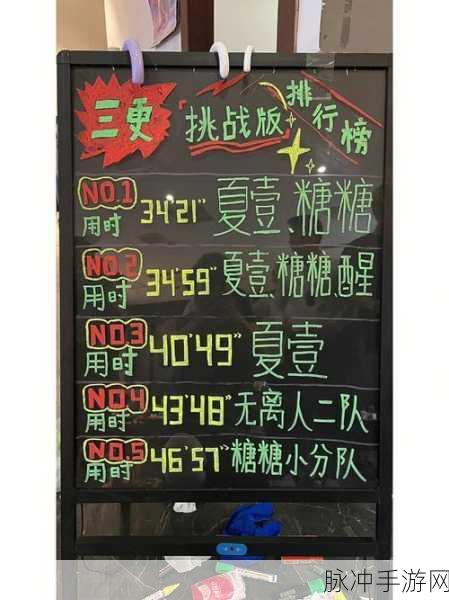 三更 挑战版 排行榜
NO.1
用时 34'21" 夏壹、糖糖
NO.2
用时 34'59" 夏壹、糖糖、醒
NO.3
用时 40'49" 夏壹
NO.4
用时 43'48" 无离人二队
NO.5
用时 46'57" 糖糖小分队
脉冲手游网